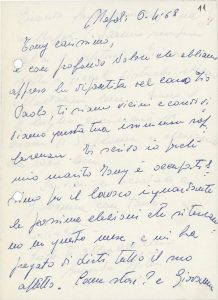 11
Napoli 6-4-68
Tony carissimo,
è con profondo dolore che abbiamo
appreso la dipartita del caro Zio
Paolo, ti siamo vicini e condivi-
diamo questa tua immensa sof-
ferenza. Ti scrivo io perché
mio marito Tony è occupatis-
simo per il lavoro riguardante
le prossime elezioni che si terran-
no in questo mese, e mi ha
pregato di dirti tutto il suo
affetto. Come stai? e Giovanna